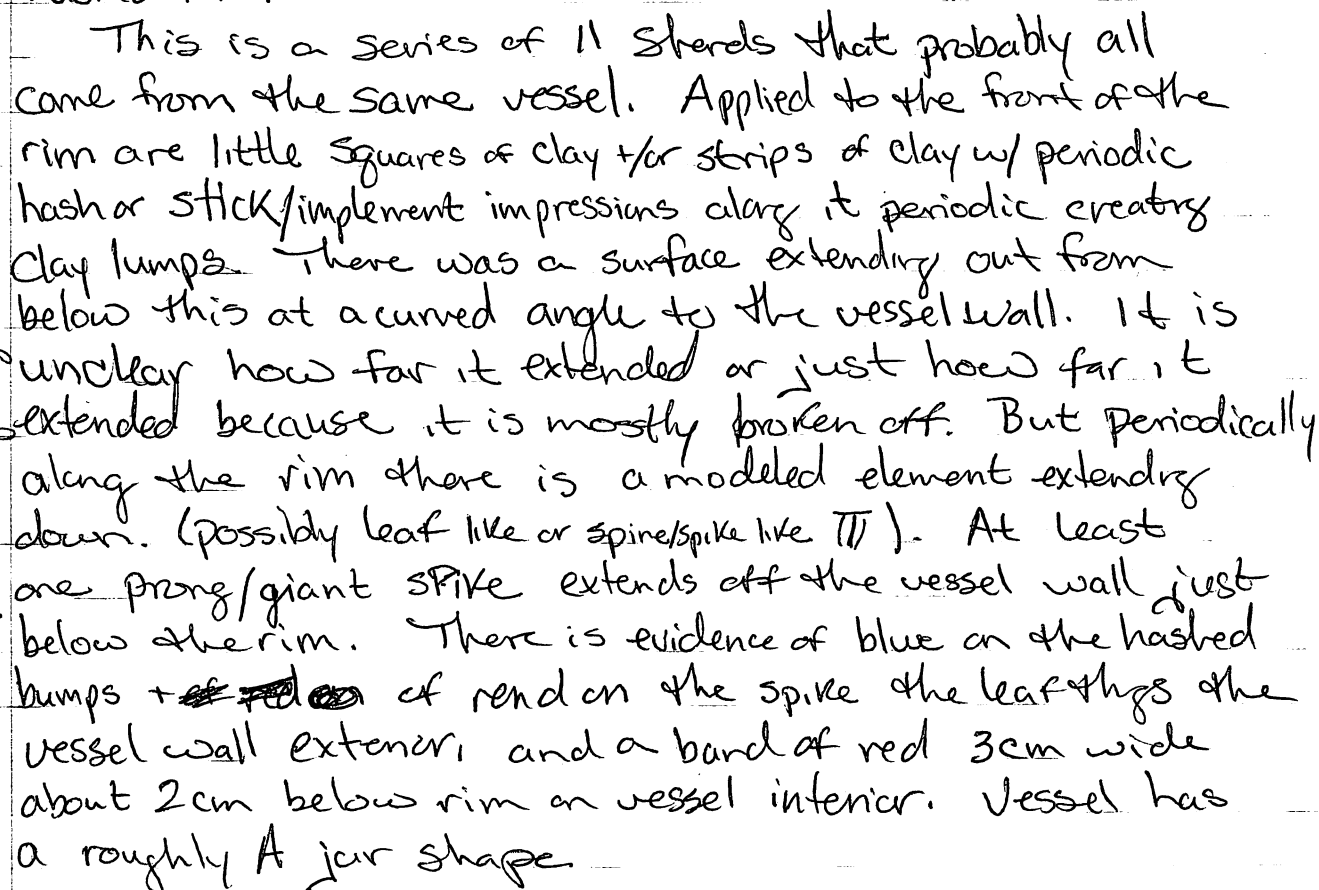 This is a series of 11 sherds that probably all
come from the same vessel. Applied to the front of the
rim are little squares of clay +/or strips of clay w/ periodic
hash or stick/implement impressions along it periodic creating
clay lumps. There was a surface extending out from
below this at a curved angle to the vessel wall. It is
unclear how far it extended or just how far it
extended because it is mostly broken off. But periodically
along the rim there is a modeled element extending
down. (possibly leaf like or spine/spike like). At least
one prong/giant spike extends off the vessel wall just
below the rim. There is evidence of blue on the hashed
bumps + of rend on the spike the leaf thgs the
vessel wall exterior, and a band of red 3cm wide
about 2cm below rim on vessel interior. Vessel has
a roughly A jar shape.